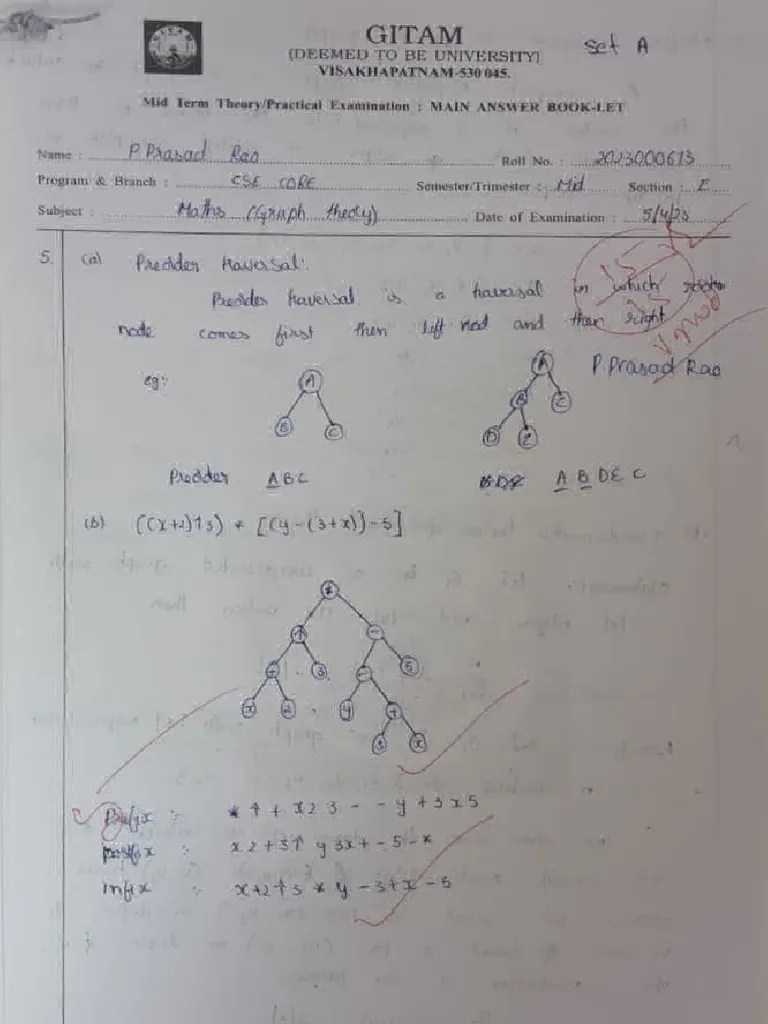 GITAM
(DEEMED TO BE UNIVERSITY)
VISAKHAPATNAM-530 045.
Set A
Mid Term Theory/Practical Examination : MAIN ANSWER BOOK-LET
Name : P Prasad Rao Roll No. : 2023000613
Program & Branch : CSE CORE Semester/Trimester : Mid Section : E
Subject : Maths (Graph theory) Date of Examination : 5/4/23
5. (a) Preoder traversal:
Preoder traversal is a traversal in which
node comes first then left and then right
P. Prasad Rao
eg:
A
B C
A
B C
D E
Preoder ABC
A B D E C
(b) ((x+2)↑3) * [(y-(3+x))-5]
*
↑ -
+ 3 - 5
x 2 y +
3 x
Prefix : * ↑ + x 2 3 - - y + 3 x 5
postfix : x 2 + 3 ↑ y 3 x + - 5 - *
infix : x+2↑3 * y - 3+x - 5